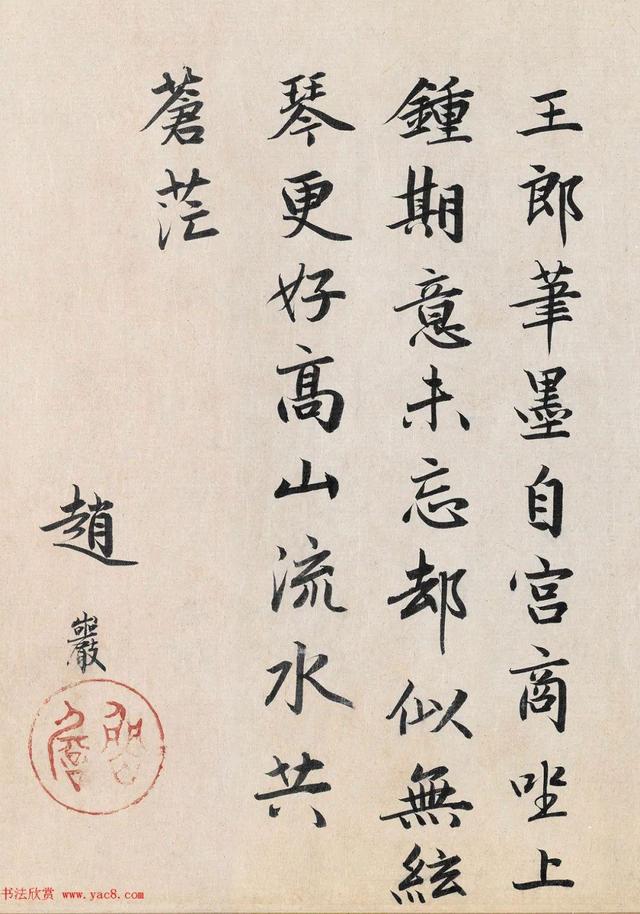 王郎筆墨自宫商坐上
鍾期意未忘却似無絃
琴更好髙山流水共
蒼茫
趙巖
书法欣赏 www.yac8.com